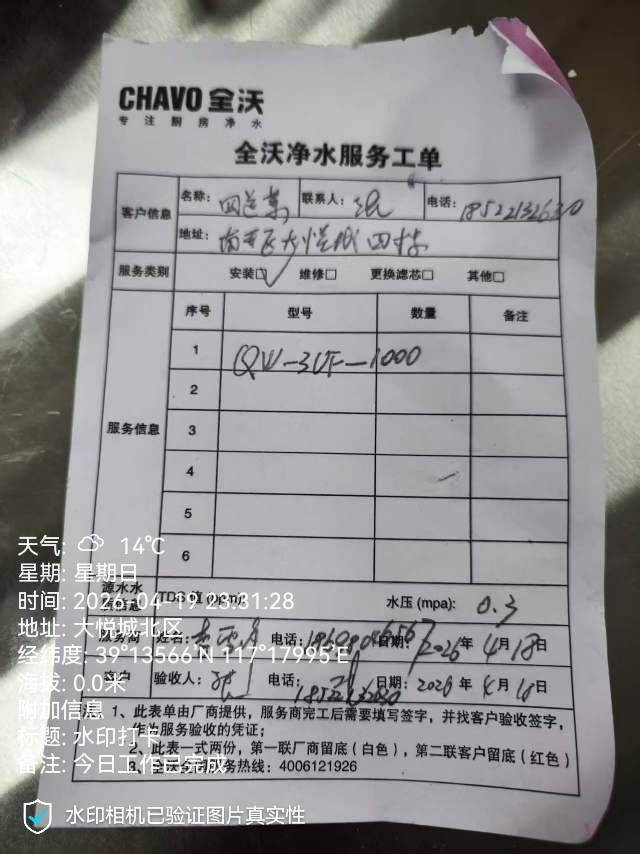 CHAVO 全沃
专注厨房净水
全沃净水服务工单
客户信息
名称: 联系人: 电话: 18522132630
地址:
服务类别 安装☑ 维修□ 更换滤芯□ 其他□
服务信息
序号 型号 数量 备注
1 QW-3UF-1000
2
3
4
5
6
源水水 TDS值(ppm): 水压 (mpa): 0.3
服务商 姓名: 电话: 日期: 2026年4月18日
客户 验收人: 电话: 日期: 2026年4月18日
注 1、此表单由厂商提供,服务商完工后需要填写签字,并找客户验收签字,
作为服务验收的凭证;
2、此表一式两份,第一联厂商留底(白色),第二联客户留底(红色)
3、全沃全国服务热线:4006121926
天气: 14℃
星期: 星期日
时间: 2026-04-19 23:31:28
地址: 大悦城北区
经纬度: 39°13566′N 117°17995′E
海拔: 0.0米
附加信息
标题: 水印打卡
备注: 今日工作已完成
水印相机已验证图片真实性